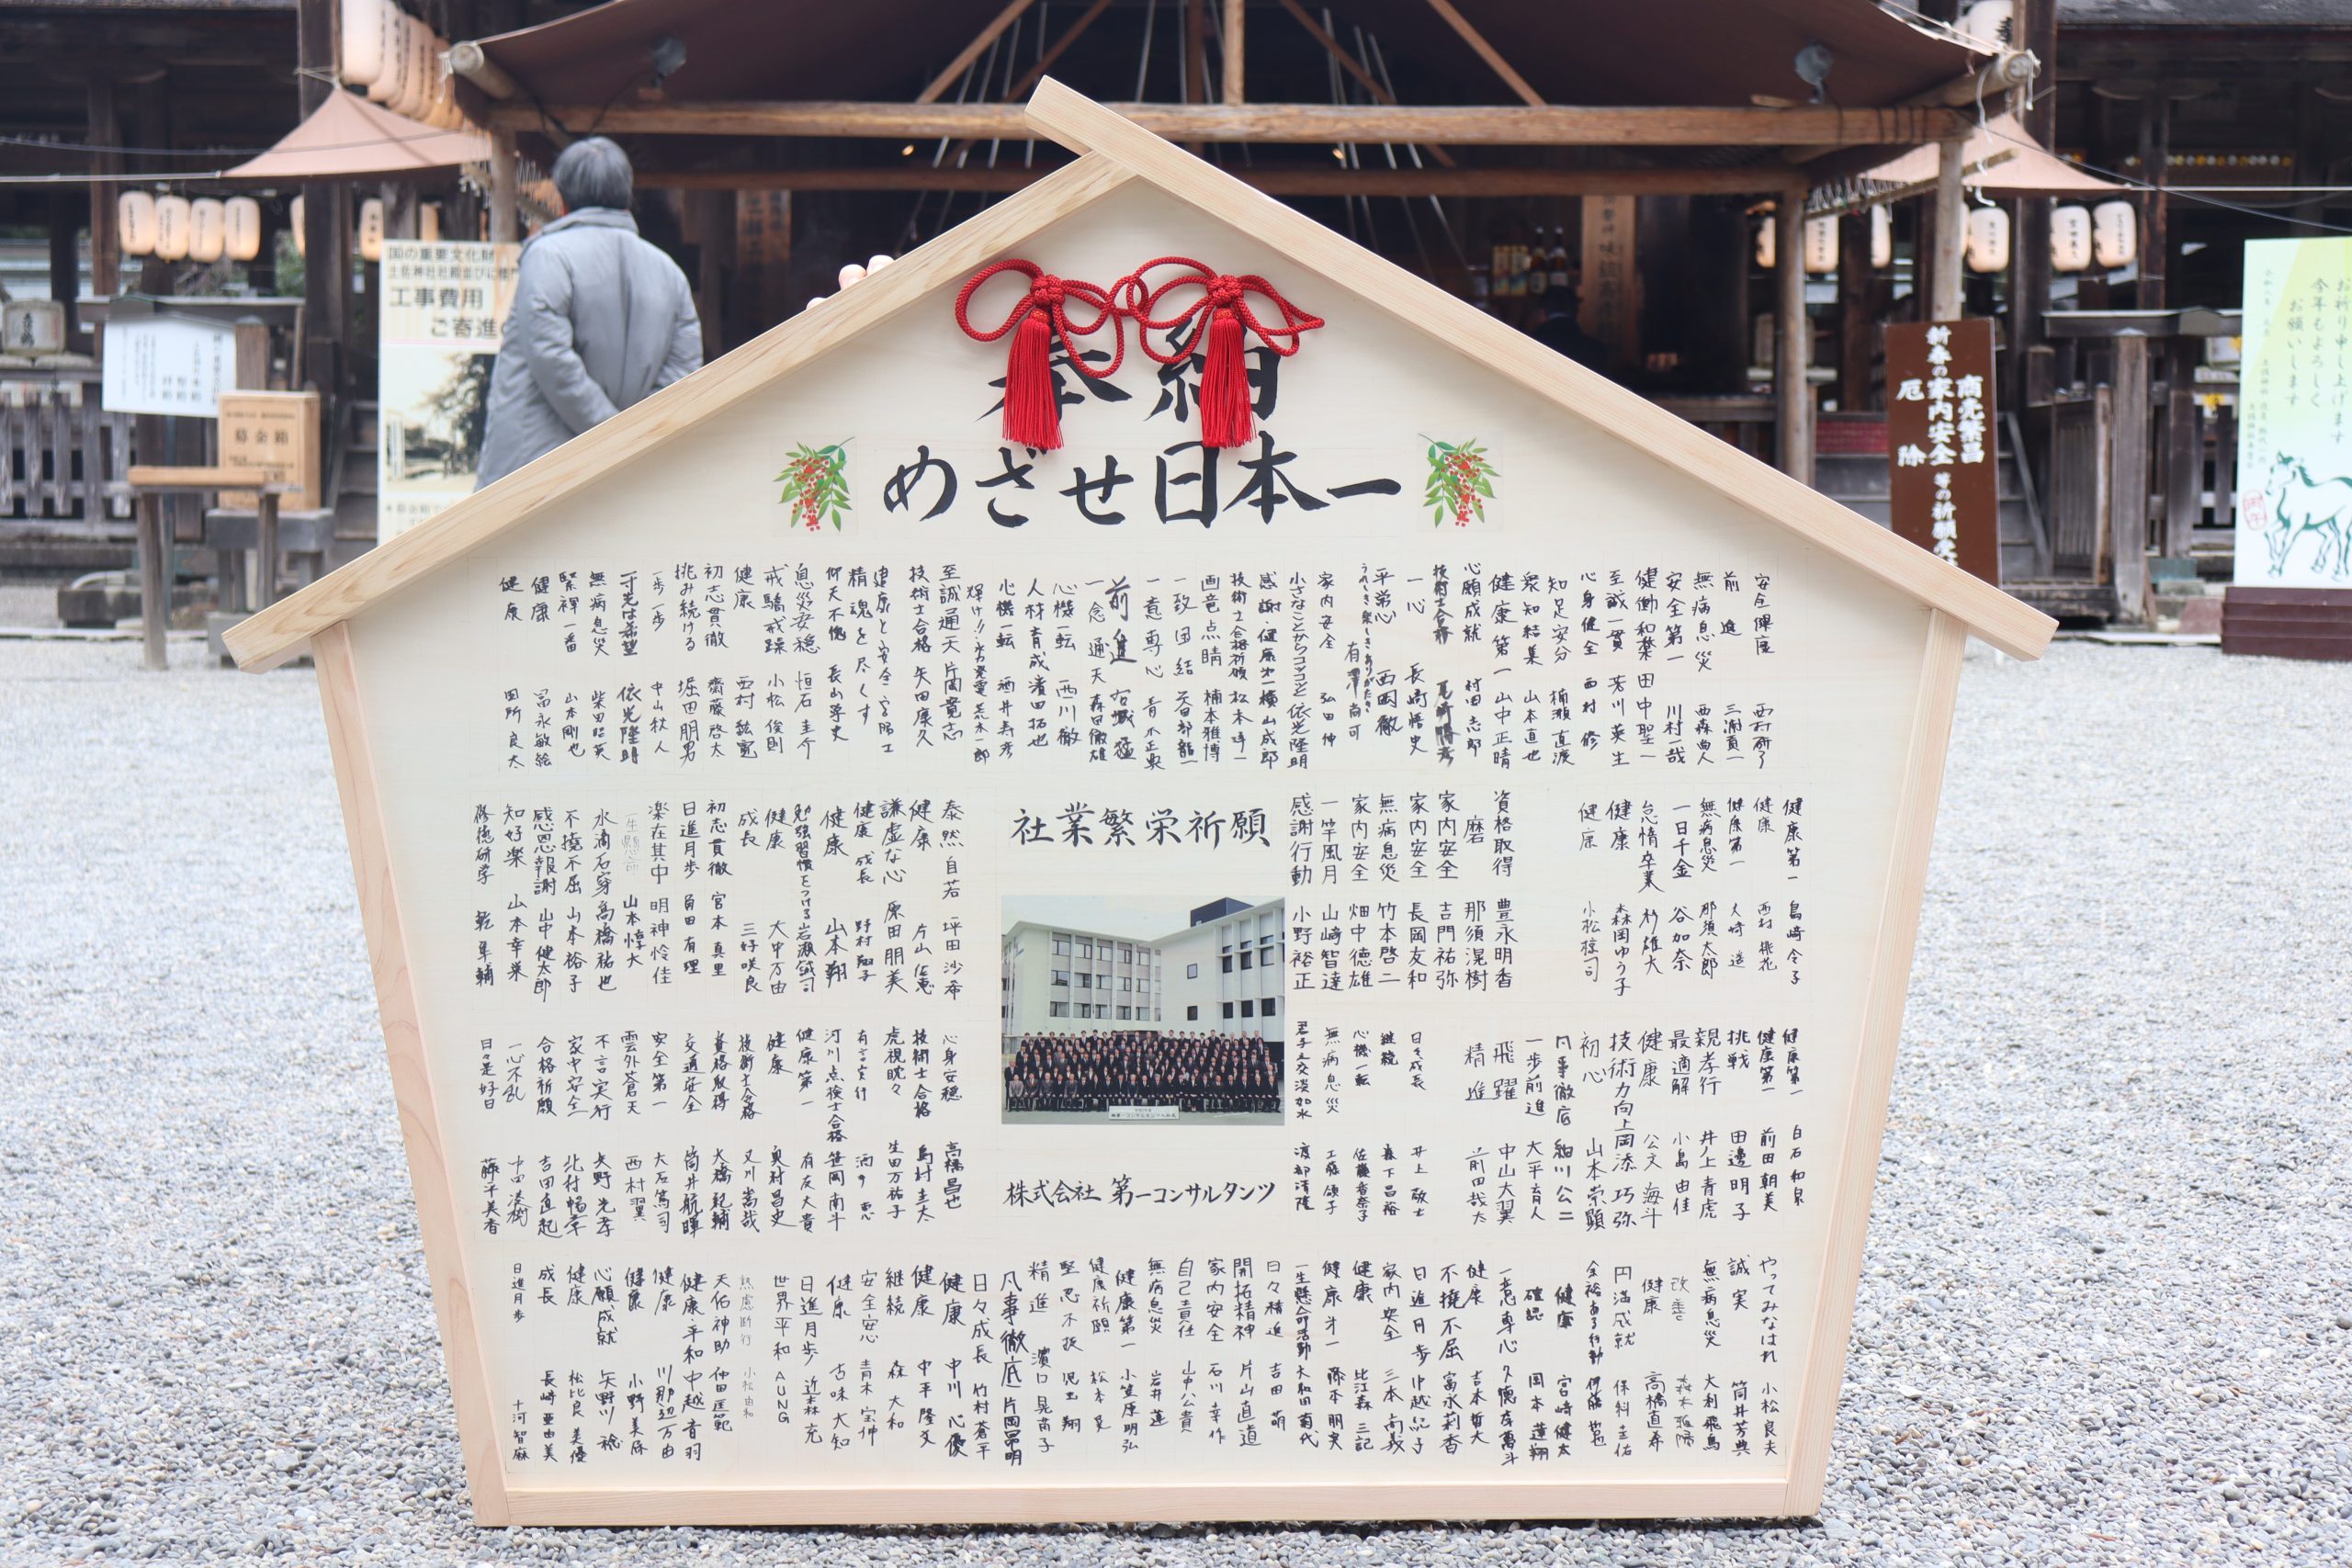 奉納
めざせ日本一
安全健康 西村
前進 三浦貢一
無病息災 西森尚人
安全第一 川村一哉
健働和楽 田中聖一
至誠一貫 芳川英生
心身健全 西村修
知足安分 楠瀬直渡
衆知結集 山本直也
健康第一 山中正晴
心願成就 村田志郎
技術士合格
一心 長崎悟史
平常心 西岡徹
家内安全 弘田伸
小さなことからコツコツと 依光隆明
感謝・健康第一 横山成郎
技術士合格祈願 松本
画竜点睛 楠本雅博
一致団結
一意専心 青木正東
前進 右城猛
一念通天 森田徹雄
心機一転 西川徹
人材育成 濱田拓也
心機一転 酒井寿秀
至誠通天 片岡寛志
技術士合格 矢田康久
健康と安全
精魂を尽くす
仰天不愧 長山
息災安穏 恒石圭介
戒驕戒躁 小松俊則
健康 西村
初志貫徹 齋藤啓太
挑み続ける 堀田朋男
一歩一歩 中山秋人
一寸先は希望 依光隆明
無病息災 柴田昭英
緊褌一番 山本剛也
健康 冨永敏絵
健康 田所良太
健康第一 島崎令子
健康 西村桃花
健康第一
無病息災 那須太郎
一日千金 谷加奈
怠惰卒業 杉雄大
健康 森岡ゆう子
健康 小松
資格取得 豊永明香
磨 那須滉樹
家内安全 吉門祐弥
家内安全 長岡友和
無病息災 竹本啓二
家内安全 畑中徳雄
一竿風月 山崎智達
感謝行動 小野裕正
社業繁栄祈願
泰然自若 坪田沙希
健康 片山
謙虚な心 原田朋美
健康 成長 野村
健康 山本翔
勉強習慣をつける 岩瀬誠司
健康 大中万由
成長 三好咲良
初志貫徹 宮本真里
日進月歩 角田有理
楽在其中 明神怜佳
山本惇大
水滴石穿 高橋祐也
不撓不屈 山本裕子
感恩報謝 山中健太郎
知好楽 山本幸葉
修徳研学 乾隼輔
健康第一 白石和泉
健康第一 前田朝美
挑戦 田邊明子
親孝行 井上青虎
最適解 小島由佳
健康 公文海斗
技術力向上 岡添巧弥
初心 山本崇顕
凡事徹底 細川公二
一歩前進 大平育人
飛躍 中山大翼
精進 前田哉太
日々成長 井上敬士
継続 森下昌裕
心機一転 佐藤香奈子
無病息災 工藤頌子
君子之交淡如水 渡部清隆
株式会社 第一コンサルタンツ
心身安穏 高橋昌也
技術士合格 島村圭太
虎視眈々 生田万祐子
有言実行
河川点検士合格 笹岡南斗
健康第一 有友大貴
健康 奥村昌史
技術士合格 又川嵩哉
資格取得 大橋範輔
交通安全 筒井航暉
安全第一 大石篤司
雲外蒼天 西村翼
不言実行 矢野光孝
家中安全 北村
合格祈願 吉田直起
一心不乱
日々是好日 藤平美香
やってみなはれ 小松良夫
誠実 筒井芳典
無病息災 大利飛鳥
改善
健康 高橋直寿
円満成就 保科圭佑
余裕ある行動
健康 宮崎健太
確認 岡本蓮翔
一意専心
健康 吉本哲大
不撓不屈 富永莉香
日進月歩 中越
家内安全 三本
健康 比江森三記
健康第一 藤本
一生懸命活動 大和田菊代
日々精進 吉田萌
開拓精神 片山直道
家内安全 石川幸作
自己責任 山中公貴
無病息災 岩井蓮
健康第一 小笠原明弘
健康祈願 松本
堅忍不抜 児玉翔
精進 濱口
凡事徹底 片岡昂明
日々成長 竹村蒼平
健康 中川心優
健康 中平隆文
継続 森大和
安全安心 青木宝伸
健康 古味大知
日進月歩 近森充
世界平和 AUNG
熟慮断行 小松由和
天佑神助 仲田匡範
健康平和 中越音羽
健康 川那辺万由
健康 小野美麻
心願成就 矢野川稔
健康 松比良美優
成長 長崎亜由美
日進月歩 十河智麻
国の重要文化財
工事費用
ご寄進
募金箱
新春の家内安全
商売繁昌
厄除
等の祈願
今年もよろしく
お願いします